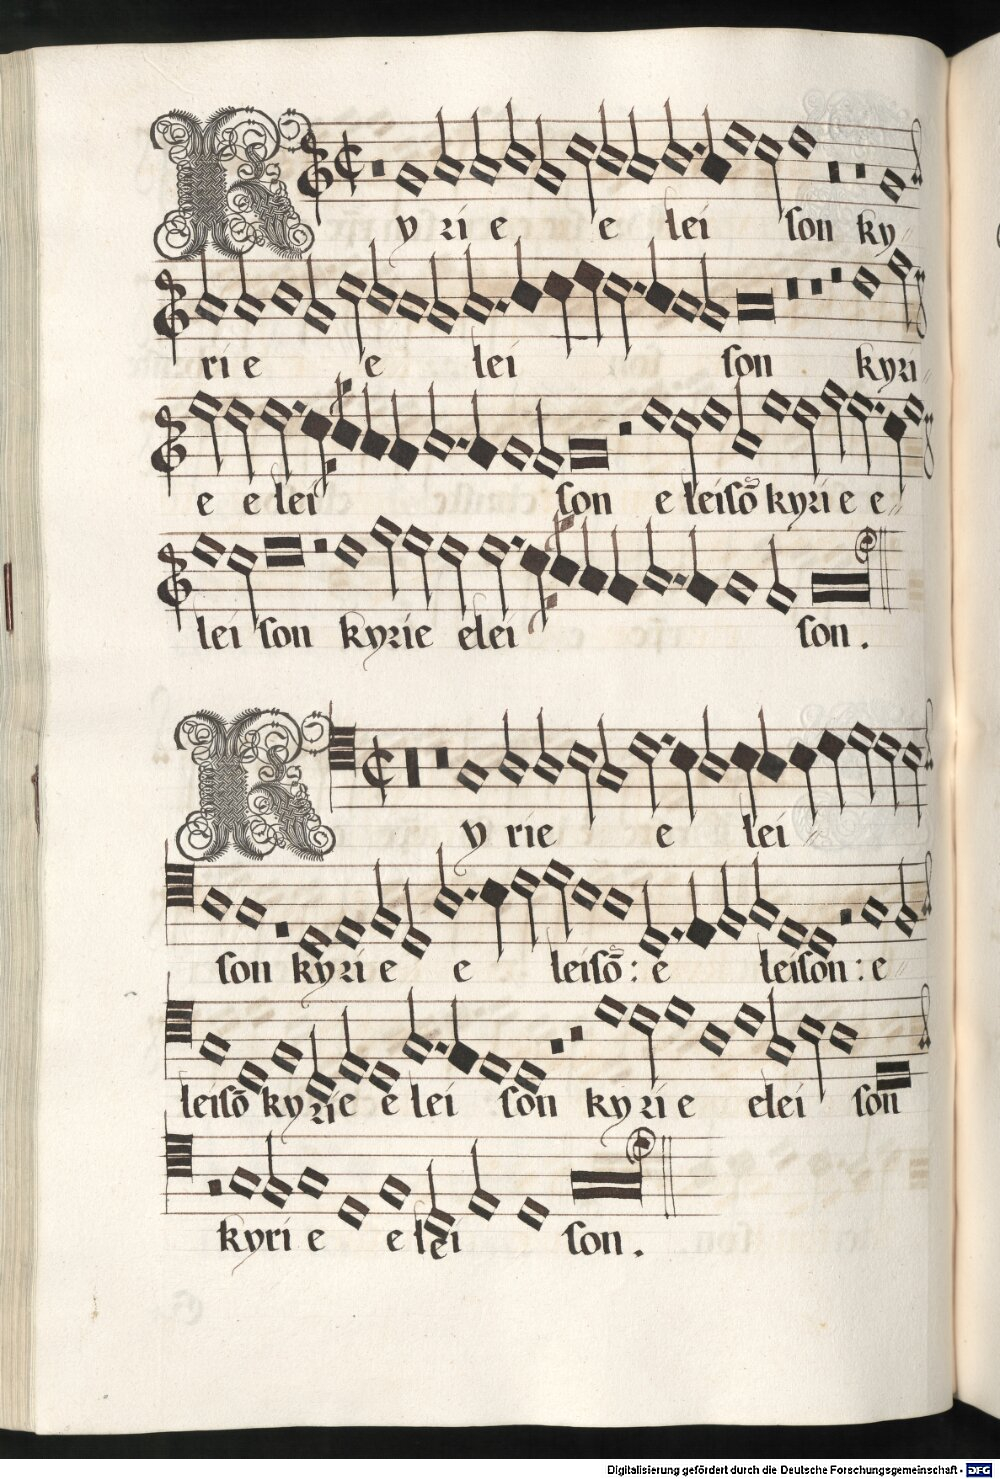 K yrie e lei son ky
rie e lei son kyri
e e lei son e leisõ kyrie e
lei son kyrie elei son.
K yrie e lei
son kyrie e leisõ: e leison: e
leisõ kyrie e lei son kyrie elei son
kyrie e lei son.
Digitalisierung gefördert durch die Deutsche Forschungsgemeinschaft - DFG